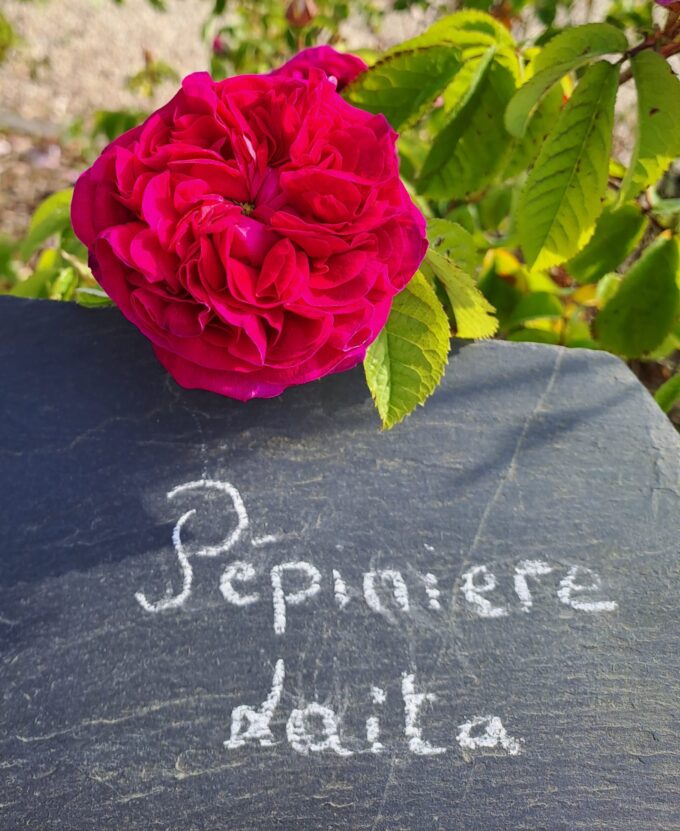 Pépiniere
Laita